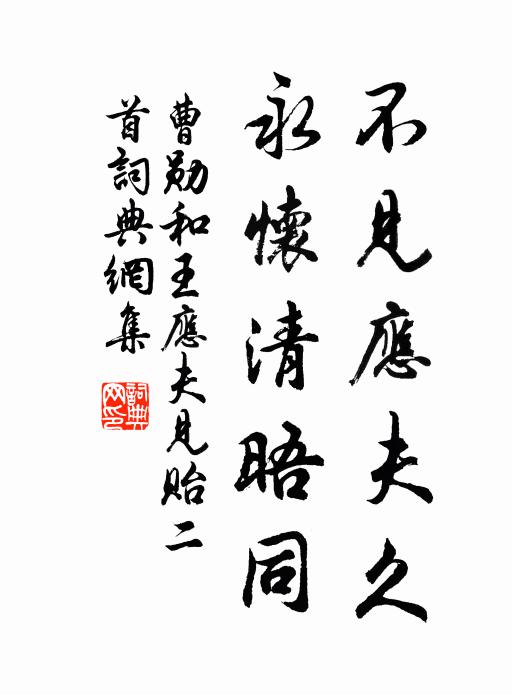 不見應夫久
永懷清晤同
曹勛和王應夫見貽二
首詞典網集
詞典
网印